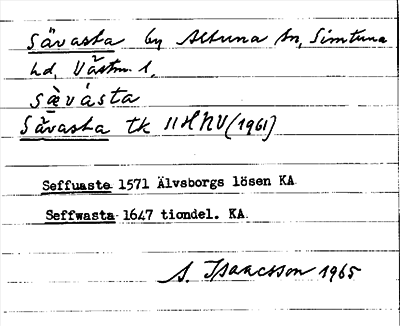 Sävasta by Altuna sn, Simtuna
hd, Västm. l,
sàvásta
Sävasta tk 11H NV (1961)
Seffuaste 1571 Älvsborgs lösen KA
Seffwasta 1647 tiondel. KA.
A. Isaacsson 1965